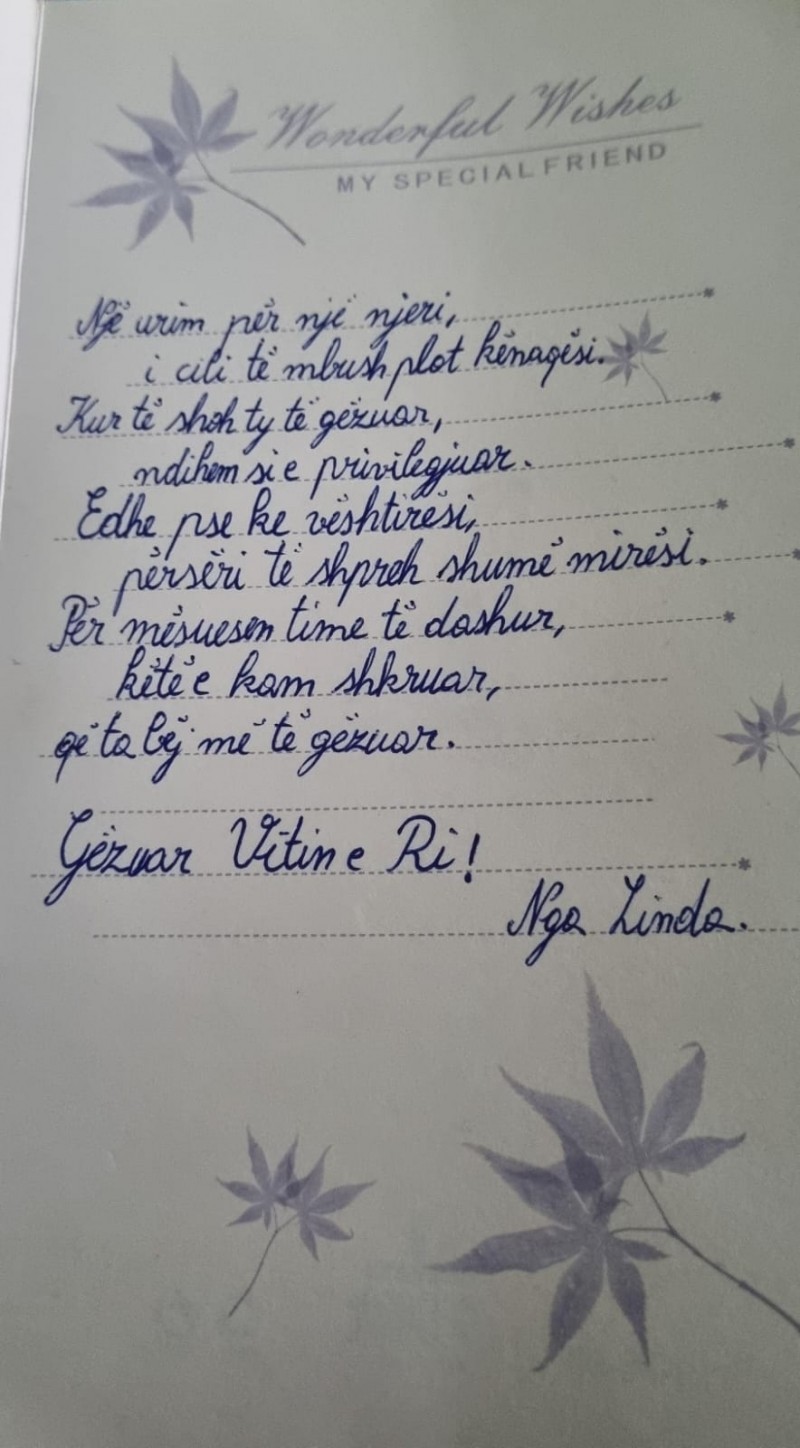 Wonderful Wishes
MY SPECIAL FRIEND
Një urim për një njeri,
i cili të mbush plot kënaqësi.
Kur të shoh ty të gëzuar,
ndihem si e privilegjuar.
Edhe pse ke vështirësi,
përsëri të shpreh shumë mirësi.
Për mësuesen time të dashur,
këtë e kam shkruar,
që ta bëj më të gëzuar.
Gëzuar Vitin e Ri!
Nga Linda.